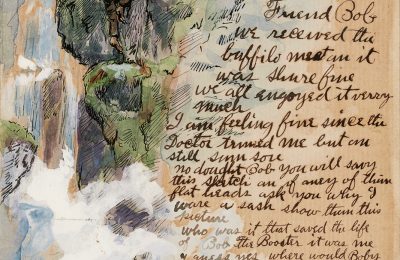 Friend Bob
we received the
buffilo meat an it
was shure fine
we all engoyed it verry
much
I am feeling fine since the
Doctor trimed me but am
still sum sore
no dought Bob you will savy
this sketch an if aney of thim
flat heads ask you why I
ware a sash show tham this
picture
who was it that saved the life
of Bob the Booster it was me
guess
where would Bobs